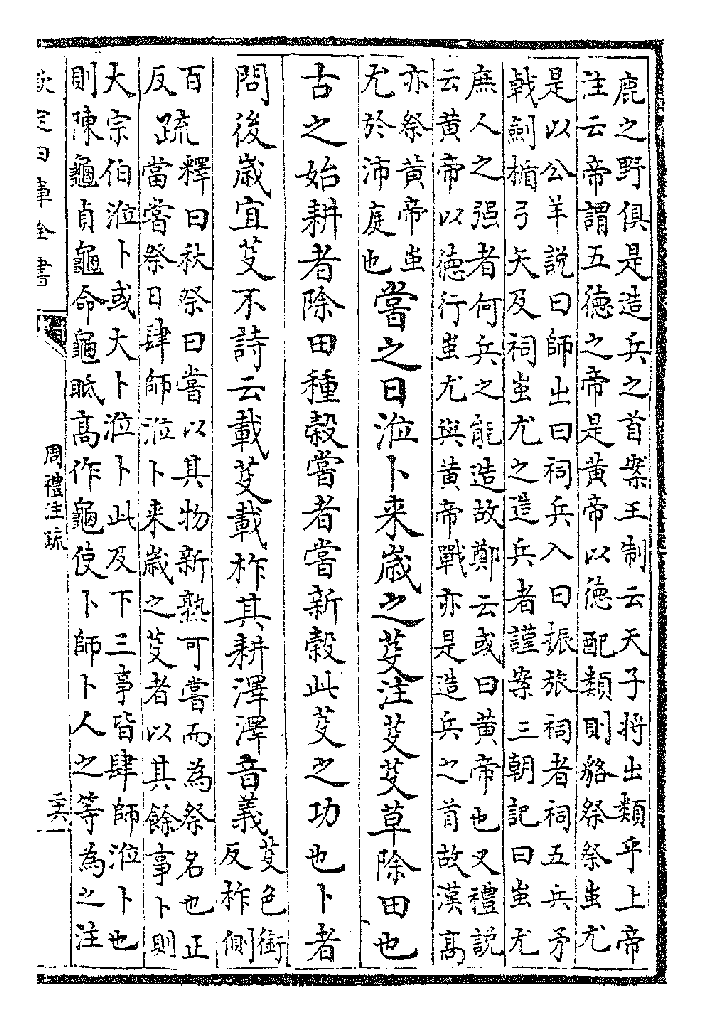 鹿之野俱是造兵之首案王制云天子將出類乎上帝
注云帝謂五德之帝是黄帝以德配類則貉祭祭蚩尤
是以公羊説曰師出曰祠兵入曰振旅祠者祠五兵矛
戟劍楯弓矢及祠蚩尤之造兵者謹案三朝記曰蚩尤
庶人之强者何兵之能造故鄭云或曰黄帝也又禮説
云黄帝以徳行蚩尤與黄帝戰亦是造兵之首故漢髙
亦祭黄帝蚩
尤於沛庭也
嘗之日涖卜来嵗之芟注芟芟草除田也
古之始耕者除田種糓嘗者嘗新糓此芟之功也卜者
問後嵗宜芟不詩云載芟載柞其耕澤澤音義
芟色銜
反柞側
百
反
疏
釋曰秋祭曰嘗以其物新熟可嘗而為祭名也正
當嘗祭日肆師涖卜来嵗之芟者以其餘事卜則
大宗伯涖卜或大卜涖卜此及下三事皆肆師涖卜也
則陳龜貞龜命龜眂髙作龜使卜師卜人之等為之注
欽定四庫全書
周禮注疏